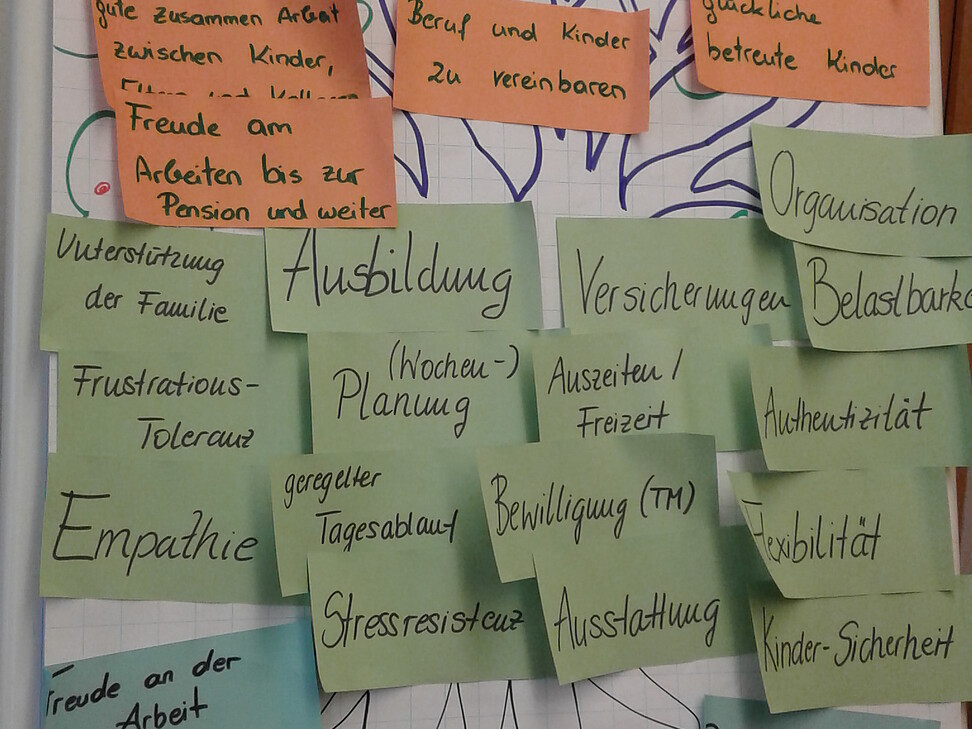 gute zusammen Arbeit
zwischen Kinder,
Eltern und
Freude am
Arbeiten bis zur
Pension und weiter
Beruf und Kinder
zu vereinbaren
glückliche
betreute Kinder
Organisation
Unterstützung
der Familie
Ausbildung
Versicherungen
Belastbark
Frustrations-
Toleranz
(Wochen-)
Planung
Auszeiten /
Freizeit
Authentizität
Empathie
geregelter
Tagesablauf
Bewilligung (TM)
Flexibilität
Stressresistenz
Ausstattung
Kinder-Sicherheit
Freude an der
Arbeit